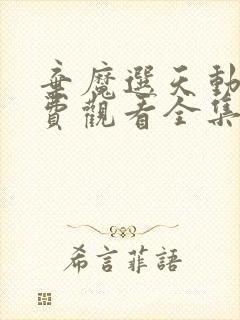 棄魔選天動
費觀看全集
希言菲語